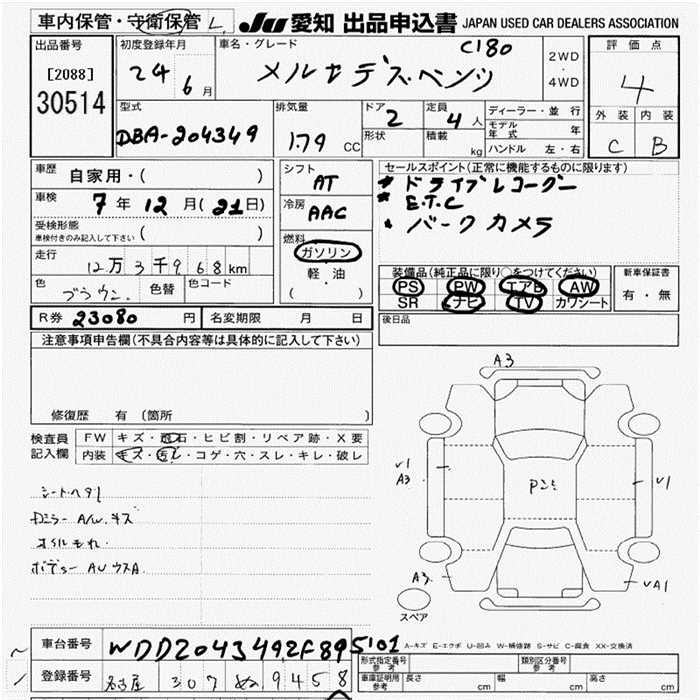 車内保管・守衛保管 L.
JU 愛知 出品申込書 JAPAN USED CAR DEALERS ASSOCIATION
出品番号
[2088]
30514
初度登録年月
24 6月
車名・グレード
C180
メルセデスベンツ
2WD
・
4WD
評価点
4
外装 内装
C B
型式
DBA-204349
排気量
1.79 CC
ドア
2
定員
4人
形状
積載
kg
ディーラー・並行
モデル年式 年
ハンドル 左・右
車歴
自家用・( )
車検
7年 12月(21日)
受検形態
車検付きのみ記入して下さい ( )
走行
12万3千968km
色
ブラウン.
色替
色コード
シフト
AT
冷房
AAC
燃料
ガソリン
軽・油
( )
セールスポイント(正常に機能するものに限ります)
* ドライブレコーダー
* E.T.C
・ バークカメラ
装備品(純正品に限り○をつけてください)
PS PW エアB AW
SR ナビ TV カワシート
新車保証書
有・無
後日品
R券 23080 円
名変期限 月 日
注意事項申告欄(不具合内容等は具体的に記入して下さい)
修復歴 有 (箇所 )
検査員
記入欄
FW キズ・飛石・ヒビ割・リペア跡・X要
内装 キズ・汚レ・コゲ・穴・スレ・キレ・破レ
シートヘタリ
ドアミラー A/W.キズ
オイルもれ.
ボデー AUウスA.
A3
V1
A3
V1
A3
VA1
スペア
A-キズ E-エクボ U-凹み W-補修跡 S-サビ C-腐食 XX-交換済
車台番号
WDD2043492F895101
登録番号
名古屋 307 ぬ 9458
形式指定番号
参考
類別区分番号
参考
車庫証明用
参考
長さ cm
幅 cm
高さ cm